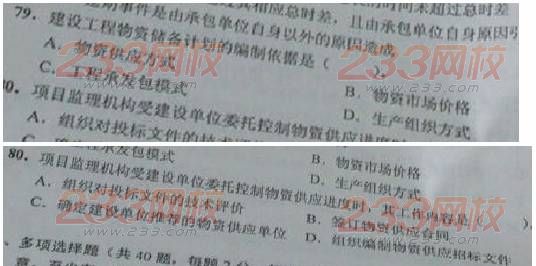 动事件是由承包单位自身以外的原因造成
79. 建设工程物资储备计划的编制依据是( )。
A. 物资供应方式
B. 物资市场价格
C. 工程承发包模式
D. 生产组织方式
项目监理机构受建设单位委托控制物资供应进度时
A. 组织对投标文件的技术
233网校
www.233.com
233网校
承发包模式
B. 物资市场价格
D. 生产组织方式
80. 项目监理机构受建设单位委托控制物资供应进度时,其工作内容是( )。
A. 组织对投标文件的技术评价
B. 签订物资供应合同
C. 确定建设单位推荐的物资供应单位
D. 组织编制物资供应招标文件
233网校
www.233.com
233网校
www.233.com
、多项选择题(共 40 题,每题 2 分